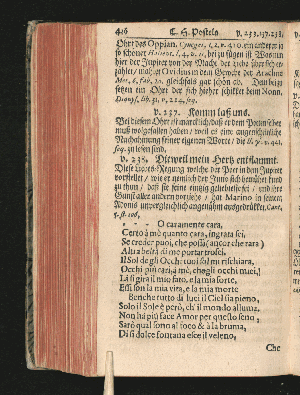 426 C. H. Postels v. 235. 237. 238.
Ohrt des Oppian. Cyneget. l. 2. v. 410. ein anderer
so schöner
hier der Jupiter von der Macht der Liebe über sich er-
zählet / mag aus Ovidius in dem Gewebe der Arachne
Met. 6. fab. 10. gleichfals gar schön
setzen ein Ohrt der sich hieher schicket beim Nonn.
Dionys. lib. 31. v. 214. seq.
v. 237. Komm laß uns.
Bey diesem Ohrt ist merklich / daß er dem Poeten
muß wolgefallen haben / weil es eine augenscheinliche
Nachahmung seiner eigenen Worte / die Il. γ. v. 441.
seq. zu lesen sind.
v. 238. Dieweil mein Hertz entflammt.
Diese Liebes-Regung welche der Poet in dem Jupiter
vorstellet / wie er nemlich der Juno sich bemühet kund
zu thun / daß sie seine einzig geliebteste sei / und ihre
Gunst aller andern vorziehe / hat Marino in seiner
Adonis unvergleichlich angenehm ausgedrücket, Cant.
3. st. 106.
O caramente cara,
Certo à mè quanto cara, ingrata sei.
Se creder puoi, che possa (autor che rara)
Altra beltà di me portar trofei.
Il Sol de gli Occhi tuoi sol mi rischiara,
Occhi più cari à mè, che gli occhi miei,
Là si gira il mio fato, e la mia sorte,
Essi son la mia vita, e la mia morte
Benche tutto di luci il Ciel sia pieno,
Solo il Sole è però, ch'il mondo alluma.
Non hà più face Amor per questo seno,
Sarò qual sono al foco & à la bruma,
Di si dolce fontana esce il veleno,
Che